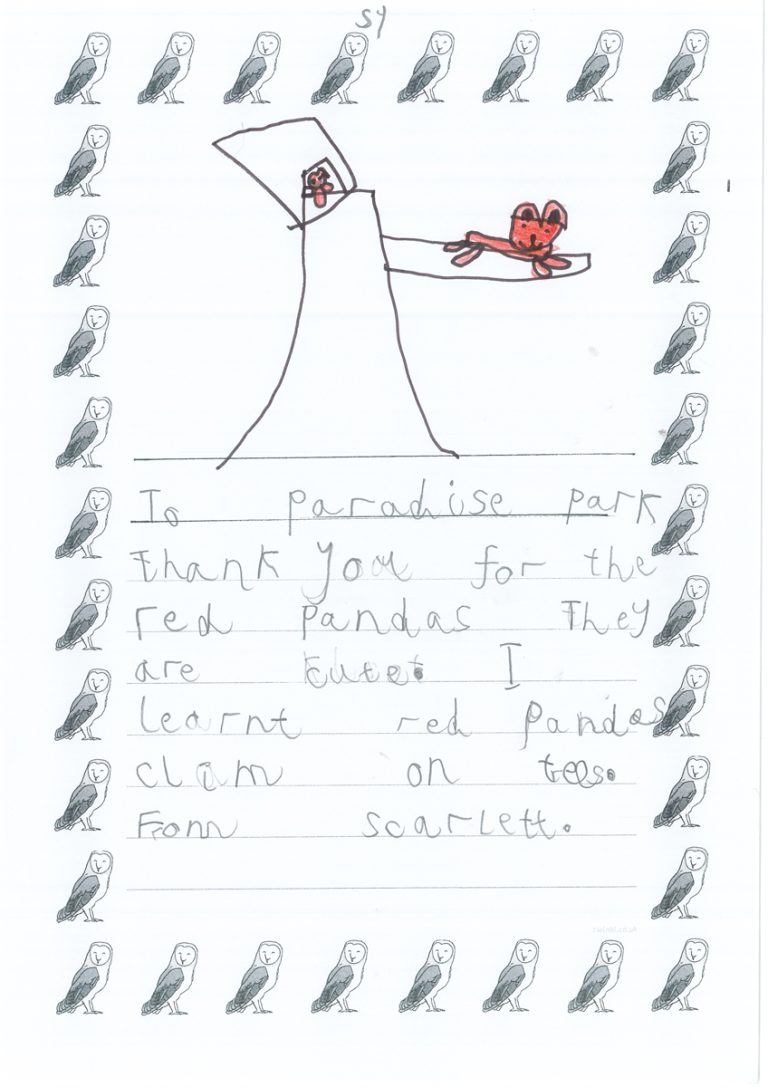 sy
To paradise park
thank you for the
red pandas They
are cute. I
learnt red pandas
clim on tees.
From scarlett.